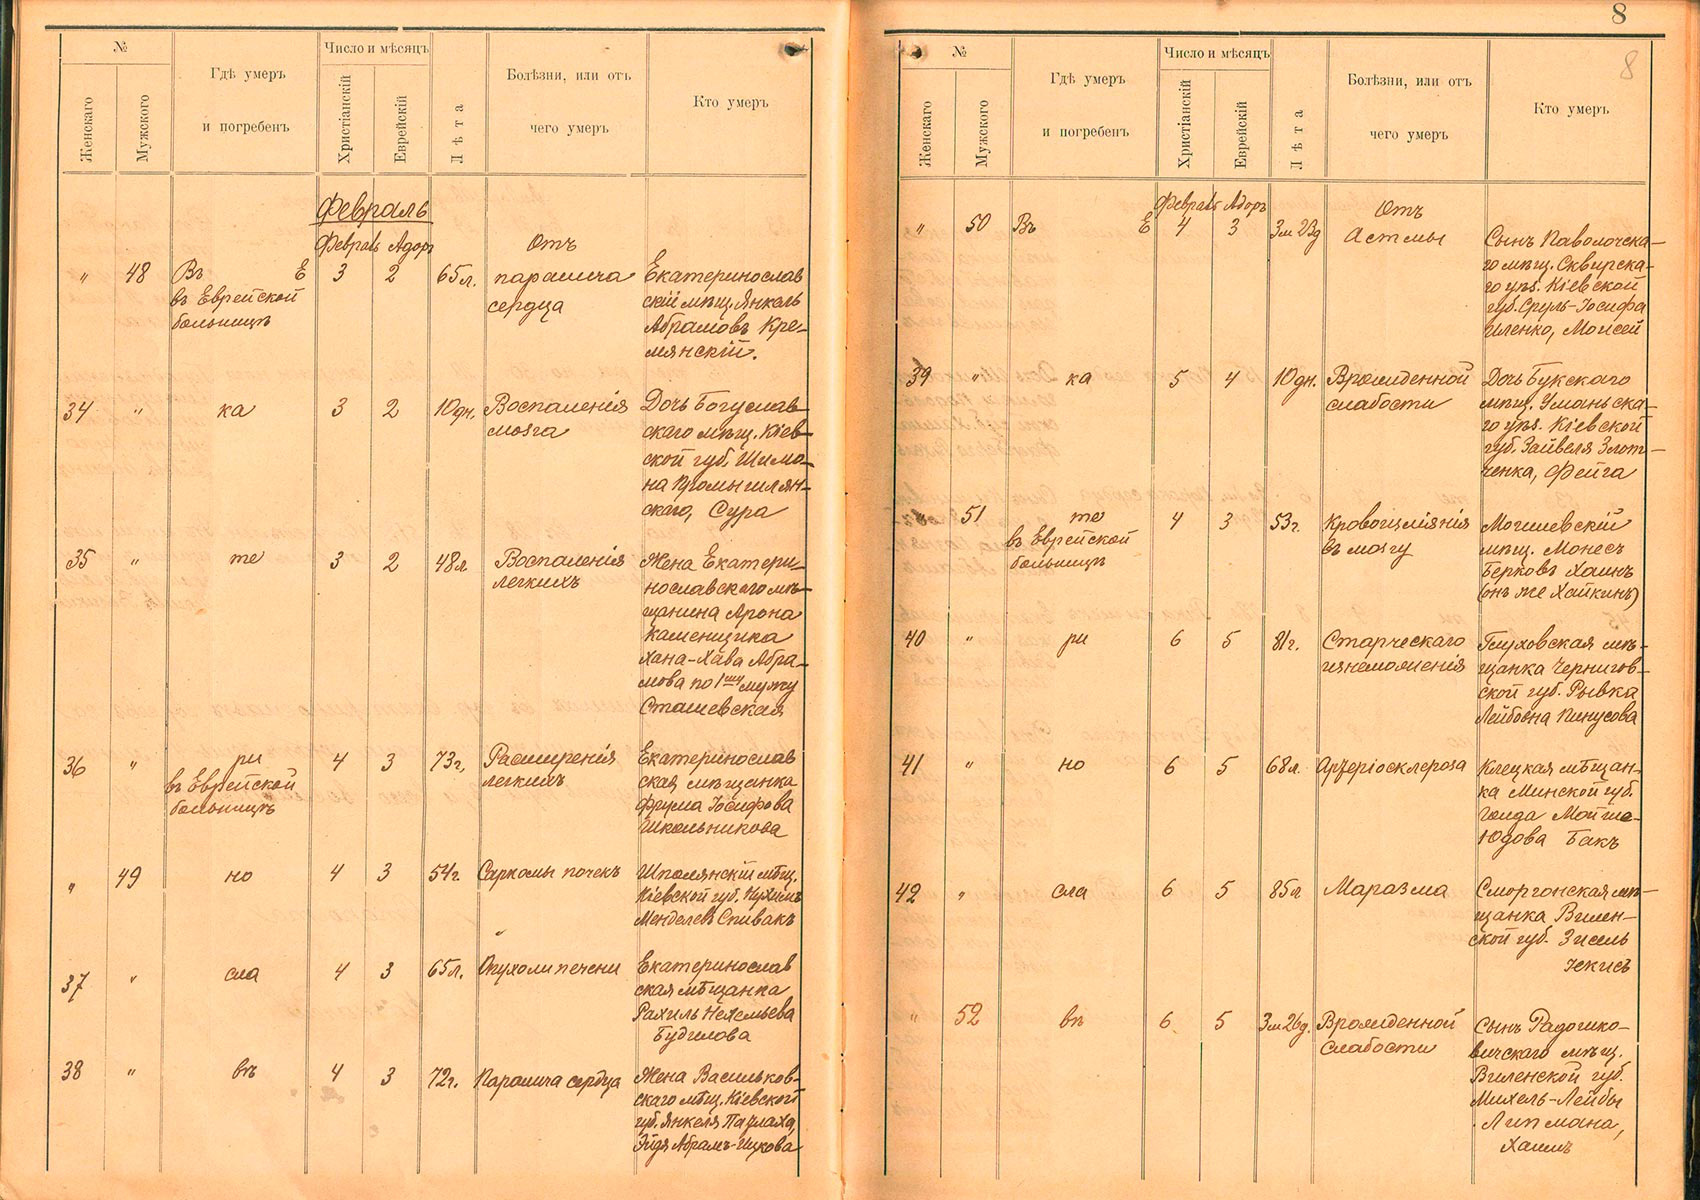 №
Женскаго
Мужского
Гдѣ умеръ
и погребенъ
Число и мѣсяцъ
Христіанскій
Еврейскій
Лѣта
Болѣзни, или отъ
чего умеръ
Кто умеръ
Февраль
Февраль Адоръ
Отъ
" 48 Въ Е 3 2 65л. паралича Екатеринослав
въ Еврейской сердца скій мѣщ. Янкель
больницѣ Абрамовъ Кре-
мянскій.
34 " ка 3 2 10дн. Воспаленія Дочь Богуслав-
мозга скаго мѣщ. Кіев-
ской губ. Шимо-
на Промышлян-
скаго, Сура
35 " те 3 2 48л Воспаленія Жена Екатери-
легкихъ нославскаго мѣ-
щанина Арона
Каменщика
Хана-Хава Абра-
мова по 1му мужу
Сташевская
36 " ри 4 3 73г. Расширенія Екатеринослав
въ Еврейской легкихъ ская мѣщанка
больницѣ Фрума Іосифова
Школьникова
" 49 но 4 3 54г. Саркомы почекъ Шполянскій мѣщ.
Кіевской губ. Нухимъ
Менделевъ Спивакъ
37 " сла 4 3 65л. Опухоли печени Екатеринослав
ская мѣщанка
Рахиль Нехемьева
Будилова
38 " въ 4 3 72г. Паралича сердца Жена Васильков-
скаго мѣщ. Кіевской
губ. Янкеля
Эйдя Абрамъ-Ицкова
8
8
№
Женскаго
Мужского
Гдѣ умеръ
и погребенъ
Число и мѣсяцъ
Христіанскій
Еврейскій
Лѣта
Болѣзни, или отъ
чего умеръ
Кто умеръ
Февраль Адоръ
Отъ
" 50 Въ Е 4 3 3м 23д Астмы Сынъ Паволочска-
го мѣщ. Сквирска-
го уѣз. Кіевской
губ. Сруль-Іосифа
Иленко, Моисей
39 " ка 5 4 10дн. Врожденной Дочь Букскаго
слабости мѣщ. Уманьска-
го уѣз. Кіевской
губ. Зайвеля Злот-
ченка, Фейга
51 те 4 3 53г. Кровоизліянія Могилевскій
въ Еврейской въ мозгу мѣщ. Монесъ
больницѣ Берковъ Хаинъ
(онъ же Хайкинъ)
40 " ри 6 5 81г. Старческаго Глуховская мѣ-
изнеможенія щанка Чернигов-
ской губ. Рывка
Лейбовна Пинусова
41 " но 6 5 68л Артеріосклероза Клецкая мѣщан-
ка Минской губ.
Голда Мойше-
Юдова Бакъ
42 " сла 6 5 85л Маразма Сморгонская мѣ-
щанка Вилен-
ской губ. Зисель
" 52 въ 6 5 3м 26д. Врожденной Сынъ Радошко-
слабости вичскаго мѣщ.
Виленской губ.
Михель-Лейбы
Липмана,
Хаимъ